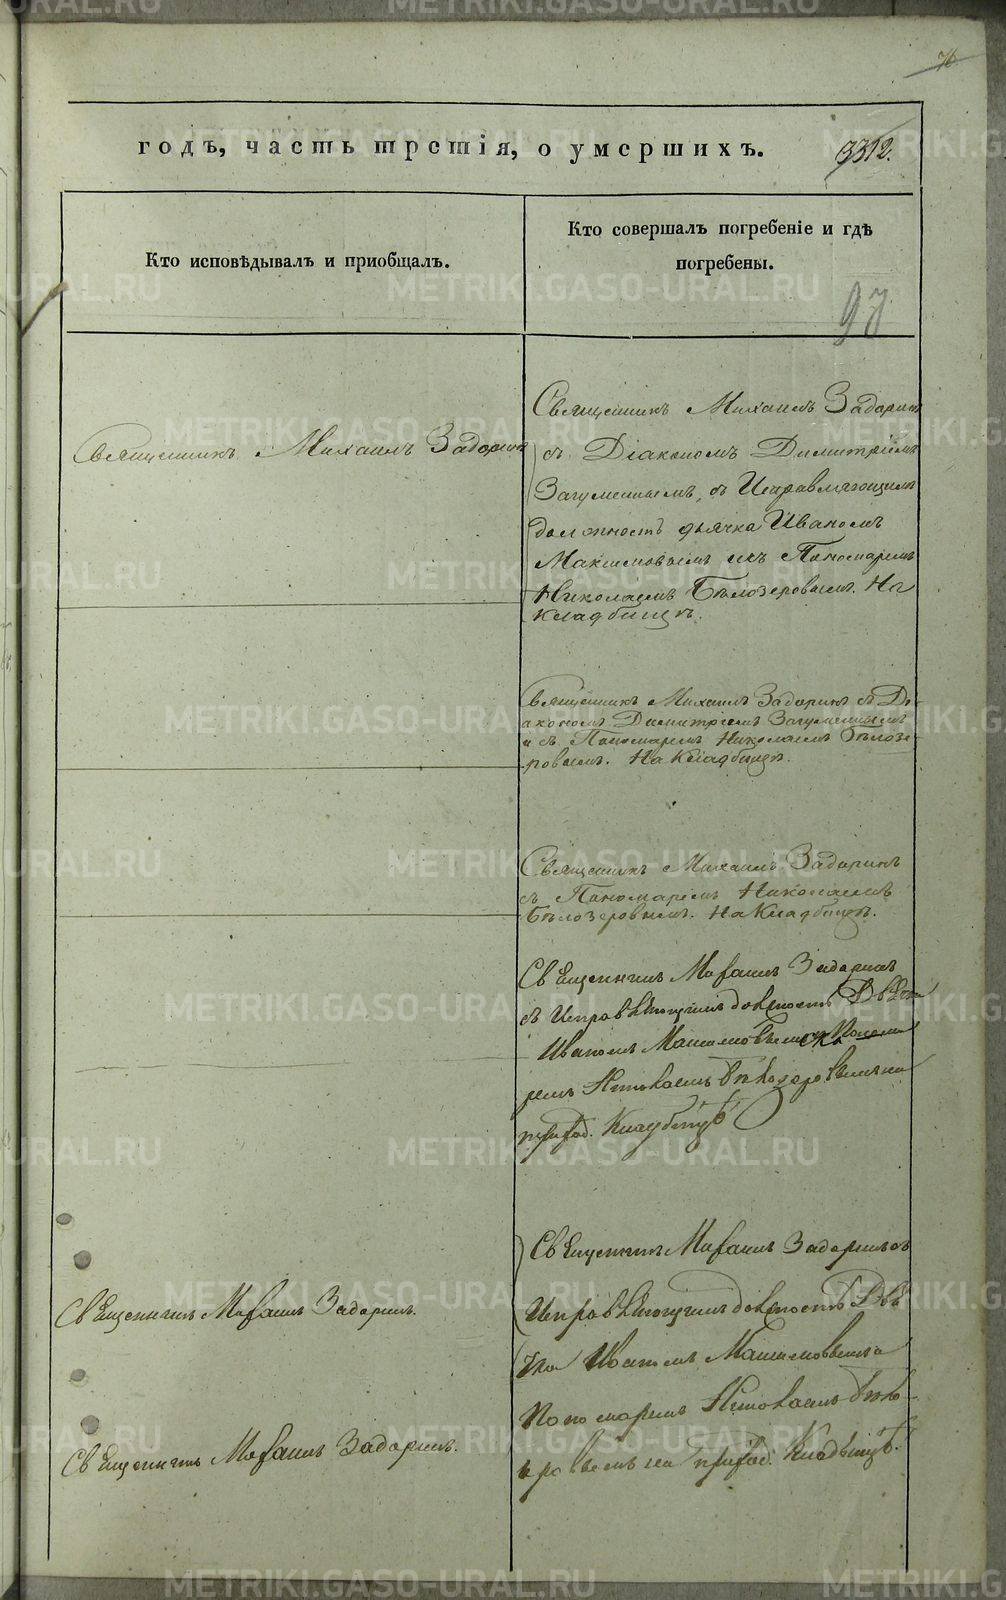 76
годъ, часть третія, о умершихъ.
3312.
Кто исповѣдывалъ и приобщалъ.
Кто совершалъ погребеніе и гдѣ
погребены.
97
Священникъ Михаилъ Задоринъ
Священникъ Михаилъ Задоринъ
съ Діакономъ Димитріемъ
Загуменнымъ, съ Исправляющимъ
должность дьячка Иваномъ
Максимовымъ и съ Пономаремъ
Николаемъ Бѣлозеровымъ. На
Кладбищѣ.
Священникъ Михаилъ Задоринъ съ Ді-
акономъ Димитріемъ Загуменнымъ
и съ Пономаремъ Николаемъ Бѣлозе-
ровымъ. На Кладбищѣ.
Священникъ Михаилъ Задоринъ
съ Пономаремъ Николаемъ
Бѣлозеровымъ. На Кладбищѣ.
Священникъ Михаилъ Задоринъ
съ Исправляющимъ должность
Иваномъ Максимовымъ съ Понома
ремъ Николаемъ Бѣлозеровымъ на
приход. Кладбищѣ
Священникъ Михаилъ Задоринъ.
Священникъ Михаилъ Задоринъ съ
Исправляющимъ должность Дья
чка Иваномъ Максимовымъ
Пономаремъ Николаемъ Бѣло-
зеровымъ на приход. Кладбищѣ.
Священникъ Михаилъ Задоринъ.
METRIKI.GASO-URAL.RU